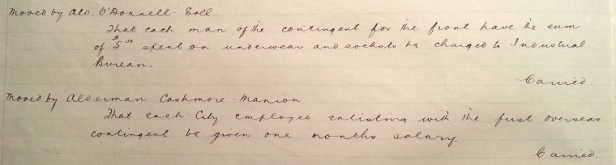 Moved by Ald. O'Donnell - Esll
That each man of the contingent for the front have the sum
of $5.00 spent on underwear and socks to be charged to Industrial
Bureau.
Carried.
Moved by Alderman Cashmore - Manion
That each City employee enlisting with the first overseas
contingent be given one months salary.
Carried.